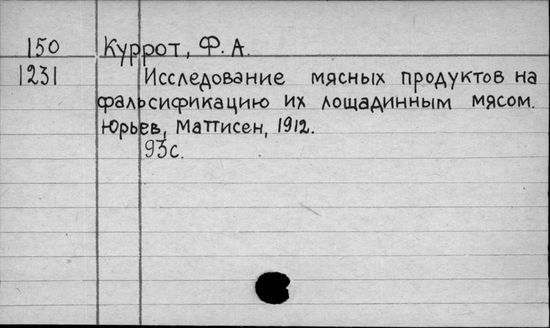 150 Куррот, Ф. А.
1231 Исследование мясных продуктов на
фальсификацию их лощадинным мясом.
Юрьев, Маттисен, 1912.
93с.